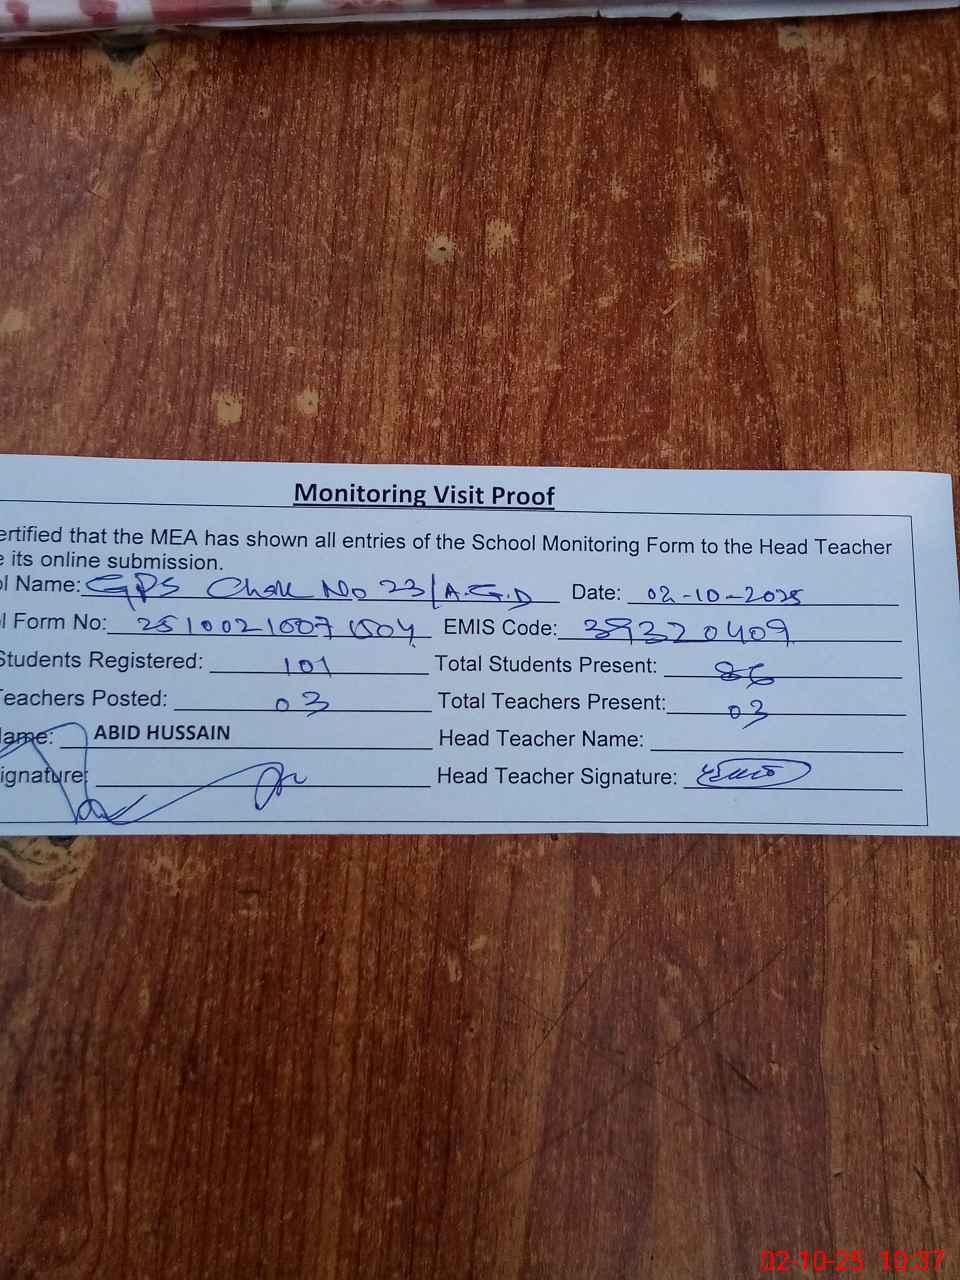 Monitoring Visit Proof
ertified that the MEA has shown all entries of the School Monitoring Form to the Head Teacher
e its online submission.
ol Name: GPS Chak No 23/A.G.D Date: 02-10-2025
l Form No: EMIS Code: 39320409
Students Registered: 101 Total Students Present: 86
Teachers Posted: 03 Total Teachers Present: 03
Name: ABID HUSSAIN Head Teacher Name:
ignature: Head Teacher Signature:
02-10-25 10:37